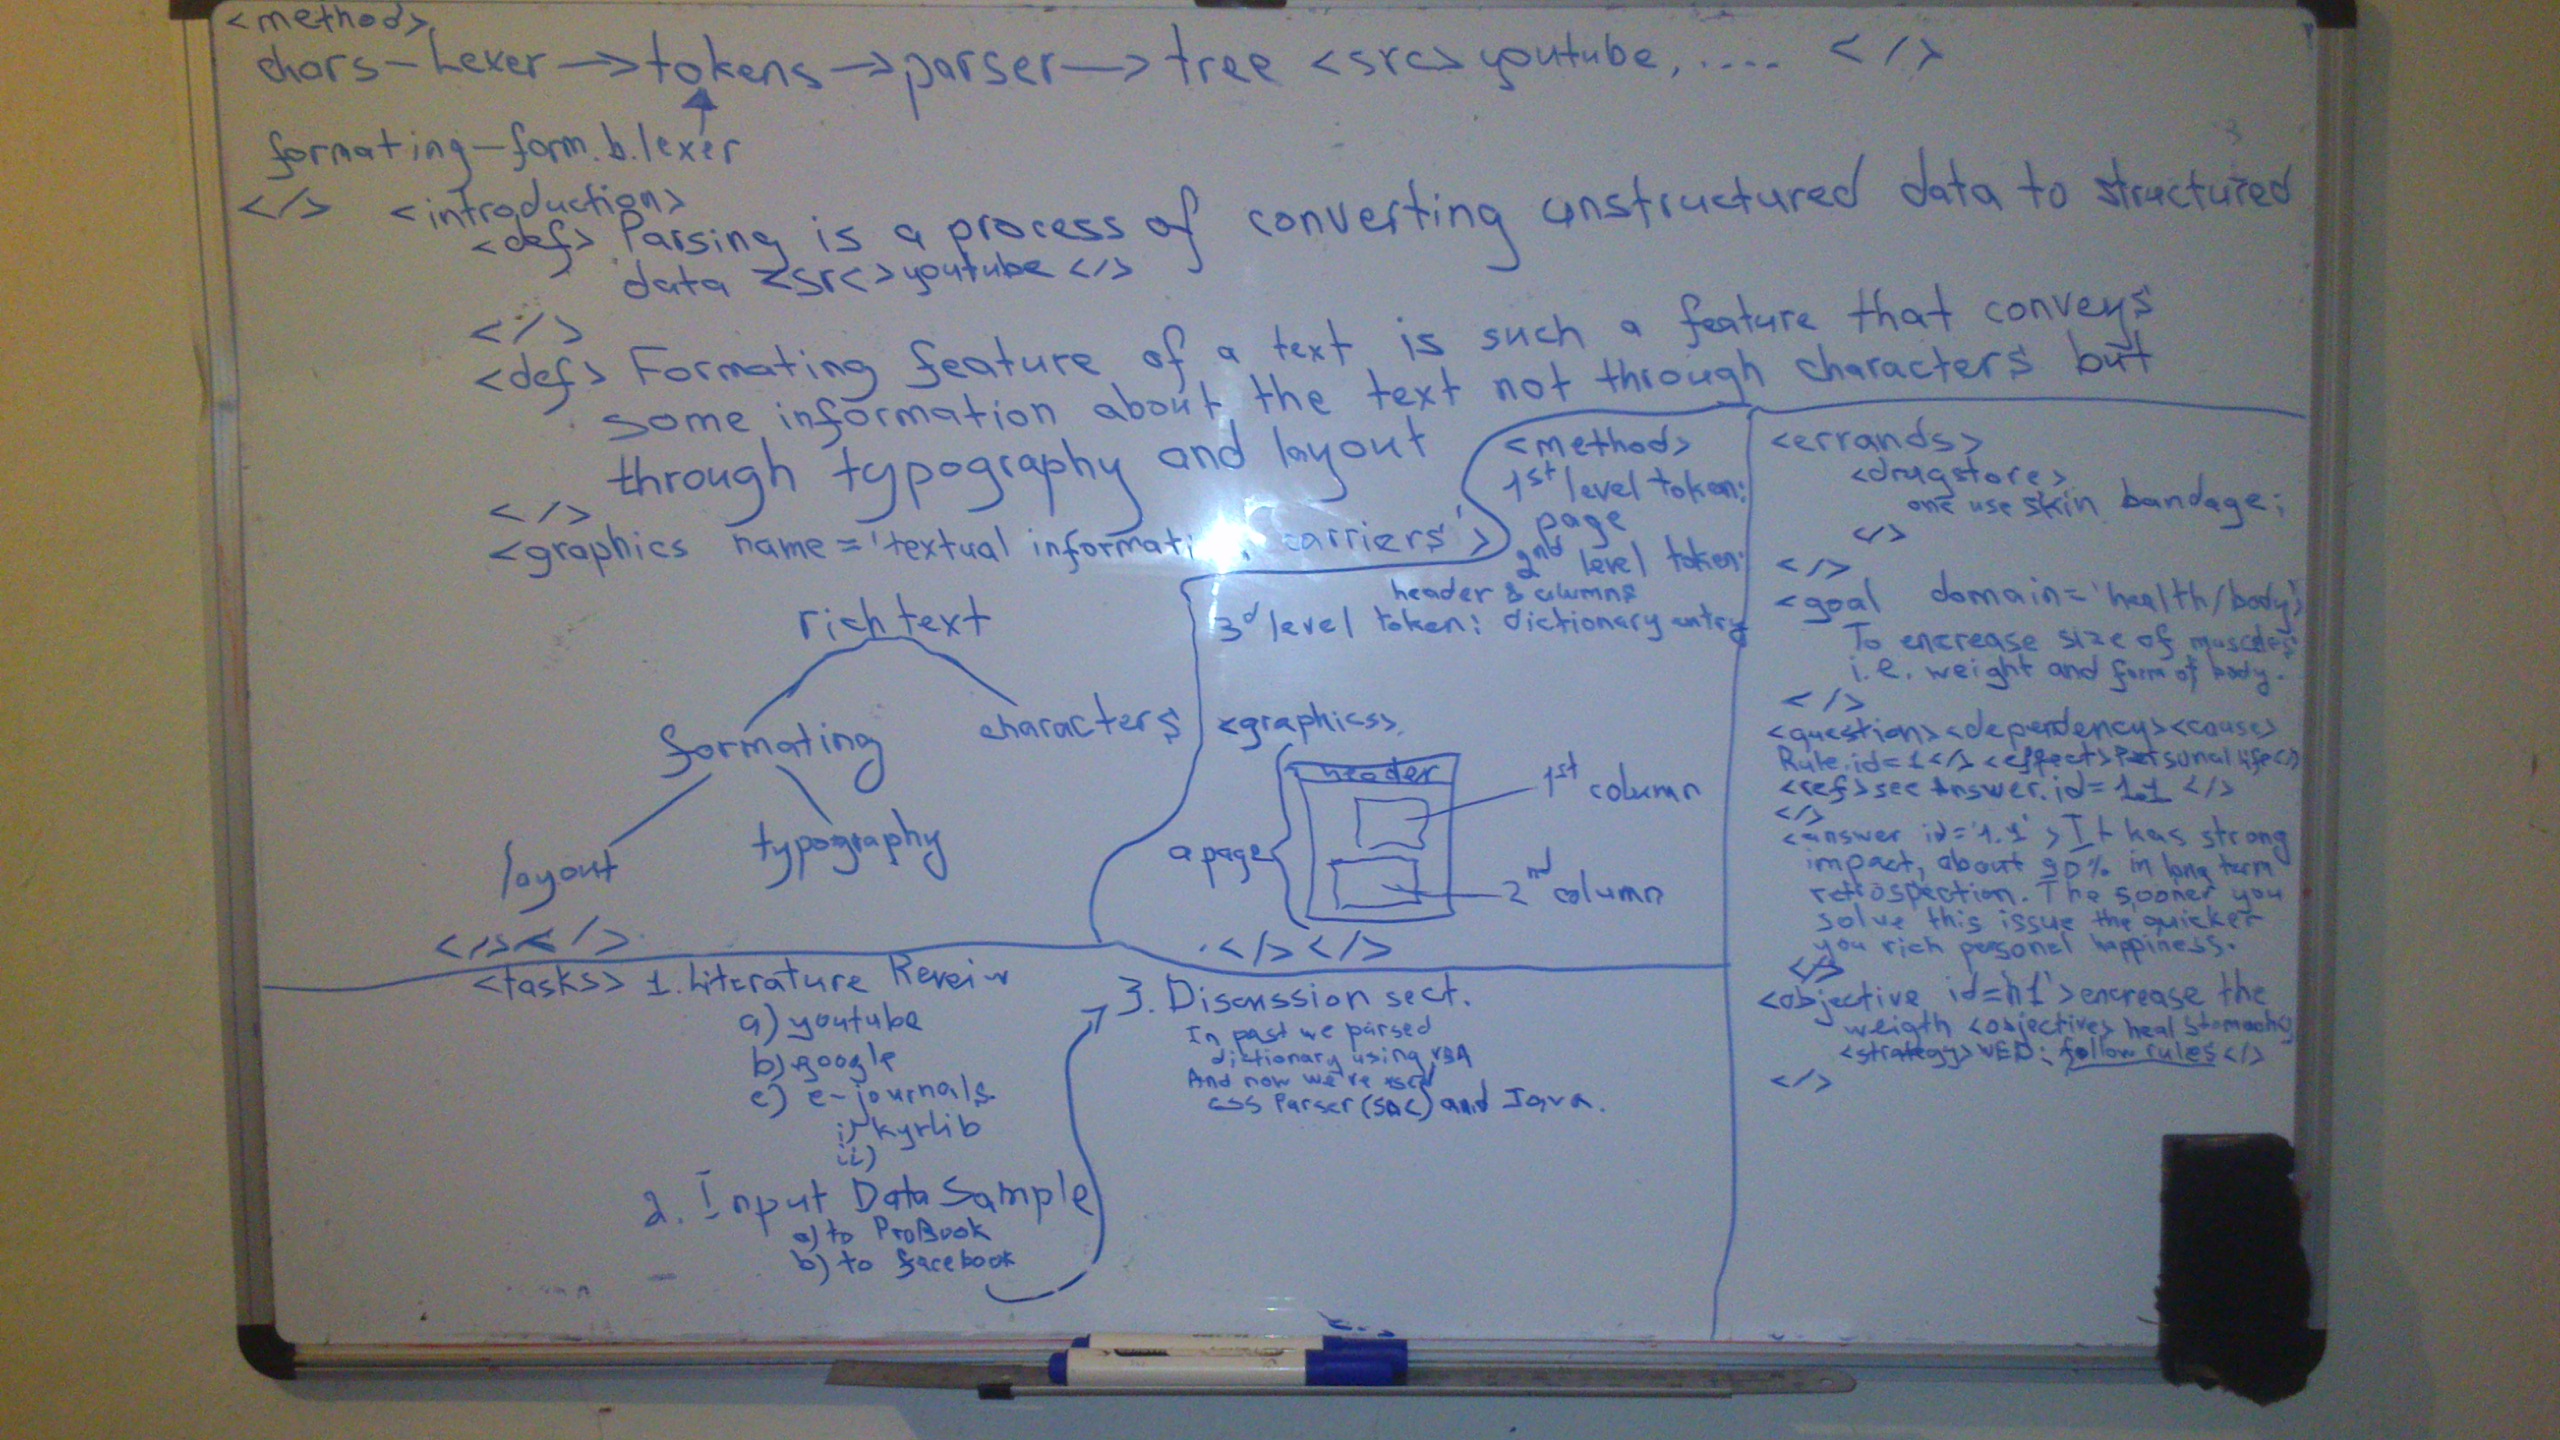 <method>
chars - Lexer -> tokens -> parser -> tree <src> youtube, .... </>
formating - form. b. lexer
</> <introduction>
<def> Parsing is a process of converting unstructured data to structured
data <src> youtube </>
</>
<def> Formating feature of a text is such a feature that conveys
some information about the text not through characters but
through typography and layout
</>
<graphics name = 'textual informati carriers'>
rich text
formating characters
layout typography
</> </>
<method>
1st level token:
page
2nd level token:
header & columns
3d level token: dictionary entry
<graphics>
header
1st column
a page
2nd column
</> </>
<errands>
<drugstore>
one use skin bandage;
</>
</>
<goal domain = 'health/body'>
To encrease size of muscles
i.e. weight and form of body.
</>
<question> <dependency> <cause>
Rule.id=1 </> <effect> Personal life </>
<ref> see Answer.id= 1.1 </>
</>
<answer id='1.1'> It has strong
impact, about 90% in long term
retrospection. The sooner you
solve this issue the quicker
you rich personal happiness.
</>
<objective id=h1'> encrease the
weigth <objective> heal stomach
<strategy> WED: follow rules </>
</>
<tasks> 1. Literature Reveiw
a) youtube
b) google
c) e-journals
i) kyrlib
ii)
2. Input Data Sample
a) to ProBook
b) to facebook
3. Discussion sect.
In past we parsed
dictionary using VBA
And now we're
CSS Parser (SAC) and Java.